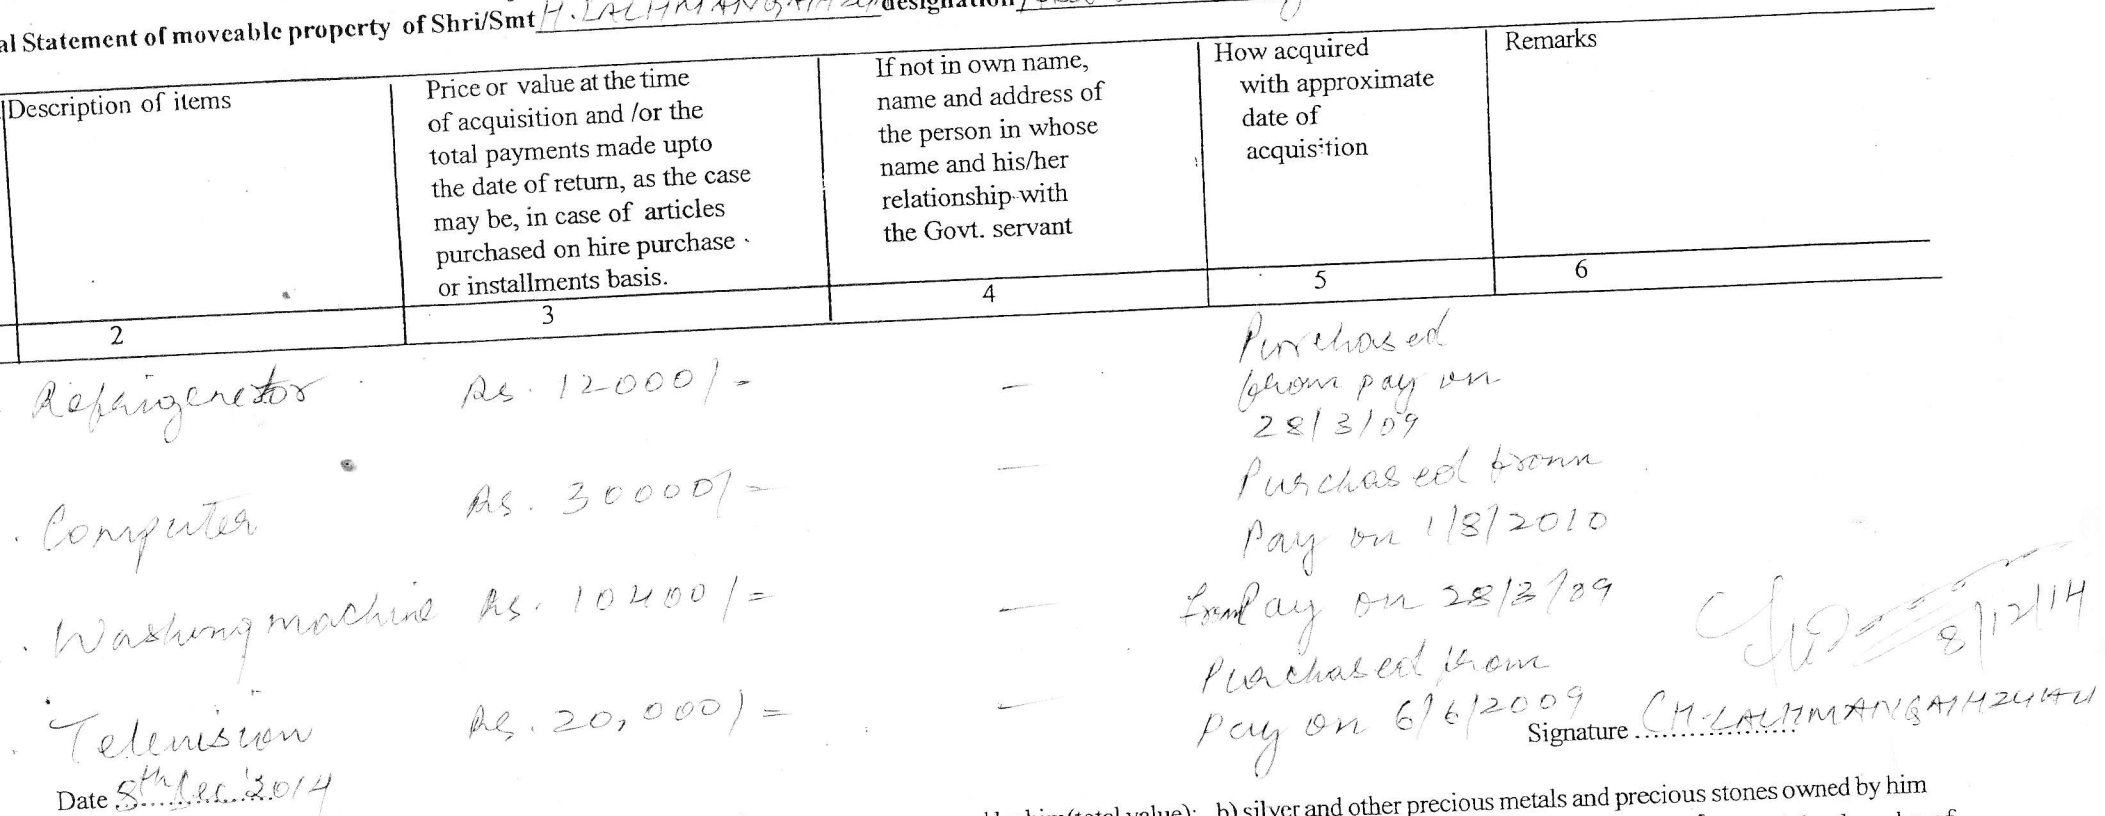 al Statement of moveable property of Shri/Smt H. LALHMANGAIHZU designation
Description of items
Price or value at the time
of acquisition and /or the
total payments made upto
the date of return, as the case
may be, in case of articles
purchased on hire purchase
or installments basis.
If not in own name,
name and address of
the person in whose
name and his/her
relationship with
the Govt. servant
How acquired
with approximate
date of
acquisition
Remarks
2 3 4 5 6
Refrigenetor Rs. 12000/- — Purchased
from pay on
28/3/09
Computer Rs. 30000/= — Purchased from
Pay on 1/8/2010
Washing machine Rs. 10400/= — from Pay on 28/3/09
8/12/14
Television Rs. 20,000/= — Purchased from
Pay on 6/6/2009
Signature (H. LALHMANGAIHZUALI
Date 8th Dec '2014
(total value); b) silver and other precious metals and precious stones owned by him